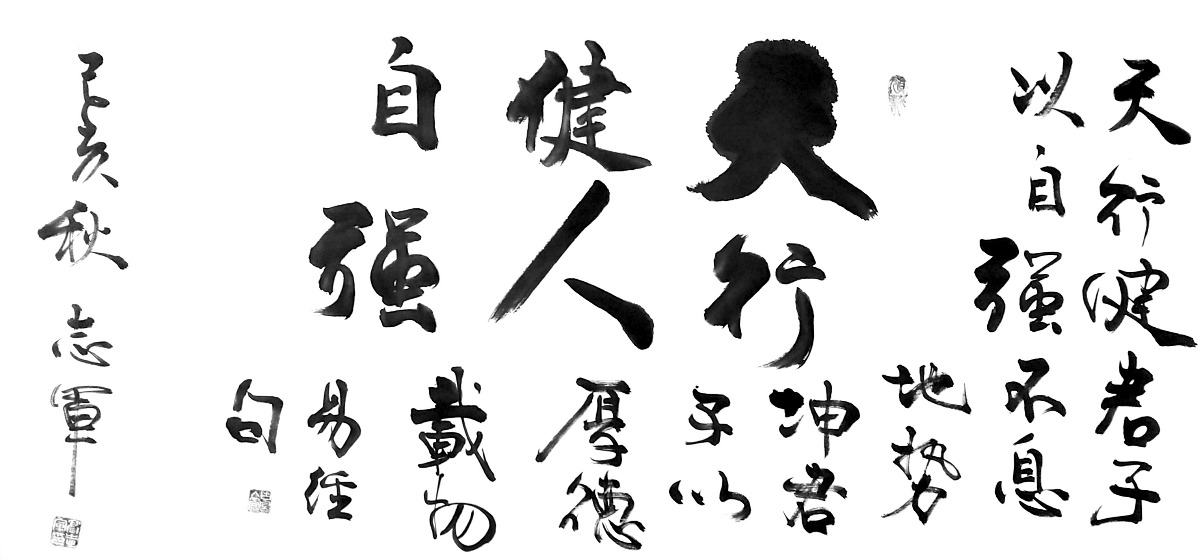 天行健君子
以自强不息
天行
健人
自强
地势
坤君
子以
厚德
載物
易經
句
己亥秋 志軍